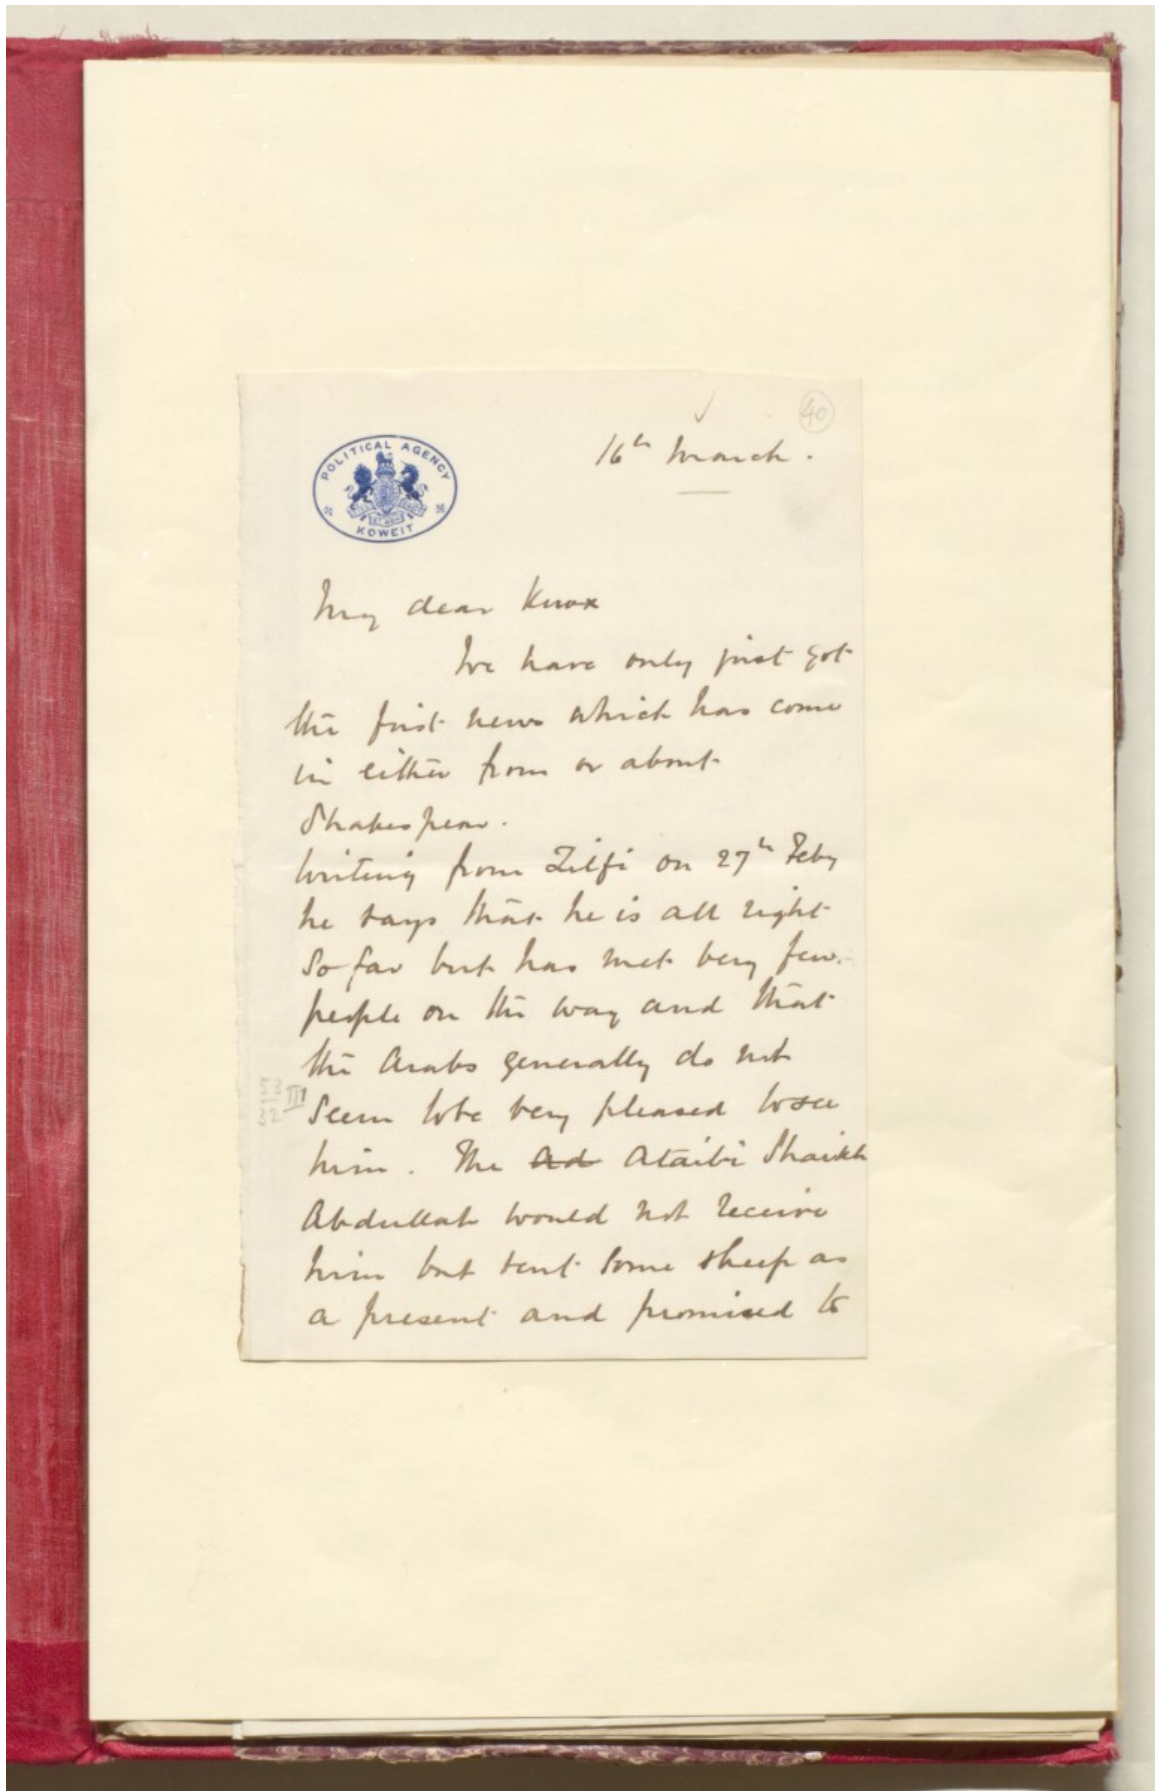 40
16th March.
POLITICAL AGENCY
KOWEIT
My dear Knox
We have only just got
the first news which has come
in either from or about
Shakespear.
Writing from Zilfi on 27th Feby
he says that he is all right
so far but has met very few
people on the way and that
the Arabs generally do not
seem to be very pleased to see
him. The Ad Ataibi Shaikh
Abdullah would not receive
him but sent some sheep as
a present and promised to